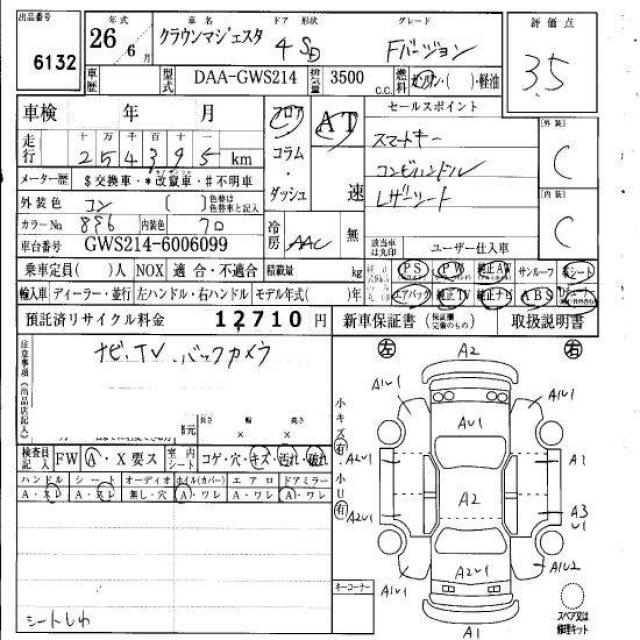 出品番号 年式 車名 ドア 形状 グレード 評価点
6132 26年 6月 クラウンマジェスタ 4 SD Fバージョン 3.5
車歴 型式 DAA-GWS214 排気量 3500 c.c. 燃料 ガソリン・( )・軽油
車検 年 月 フロア AT セールスポイント
走行 十 万 千 百 十 一 コラム スマートキー [外装] C
254395 km コンビハンドル
メーター歴 $交換車・*改竄車・#不明車 ・ダッシュ 速 レザーシート [内装] C
外装色 コン ( ) 色替は色替車と記入
カラーNo. 8P6 内装色 クロ 冷房 AAC 無
車台番号 GWS214-6006099 該当車は丸印 ユーザー仕入車
乗車定員( )人 NOX 適合・不適合 積載量 kg PS PW 純正AW サンルーフ 革シート
輸入車 ディーラー・並行 左ハンドル・右ハンドル モデル年式( )年 エアバッグ 純正TV 純正ナビ ABS
預託済リサイクル料金 12710円 新車保証書 (保証欄完備のもの) 取扱説明書
注意事項(出品店記入) ナビ、TV、バックカメラ
諸元 長さ 幅 高さ
× ×
検査員記入 FW A・X要ス 室内シート コゲ・穴・キズ・汚れ・破れ
ハンドル シート オーディオ ホイル(カバー) エアロ ドアミラー
A・スレ A・スレ 無し・穴 A・ワレ A・ワレ A・ワレ
シートしわ
小キズ有・小U有
キーコーナー
左 A2 右
A1U1 A1U1
AU1
A2U1 A1
A2
A2U1 A3
U1
A2U1
A1U1 A1U2
A1
スペア又は修理キット